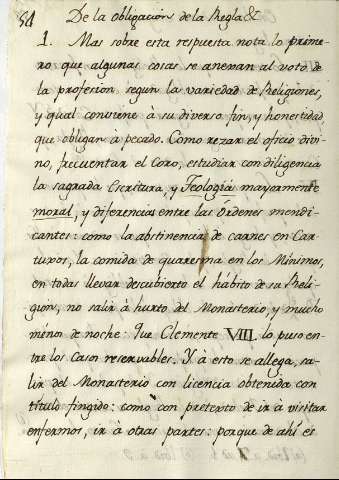 54 De la obligación de la Regla &
1. Mas sobre esta respuesta nota lo prime-
ro que algunas cosas se anexan al voto de
la profesion segun la variedad de Religiones,
y qual conviene à su diverso fin, y honestidad,
que obligan à pecado. Como rezar el oficio divi-
no, frecuentar el Coro, estudiar con diligencia
la sagrada Escritura, y Teología mayormente
moral, y diferencias entre las Órdenes mendi-
cantes: como la abstinencia de carnes en Car-
tuxos, la comida de quaresma en los Mínimos,
en todas llevar descubierto el hábito de su Reli-
gion, no salir à hurto del Monasterio, y mucho
ménos de noche: Que Clemente VIII. lo puso en-
tre los Casos reservables. Y à esto se allega, sa-
lir del Monasterio con licencia obtenida con
título fingido: como con pretexto de ir à visitar
enfermos, ir à otras partes: porque de ahí es